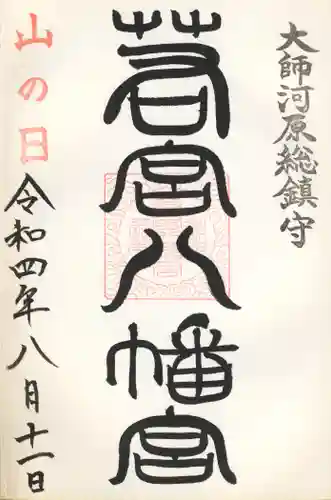 大師河原総鎮守
若宮八幡宮
山の日
令和四年八月十一日